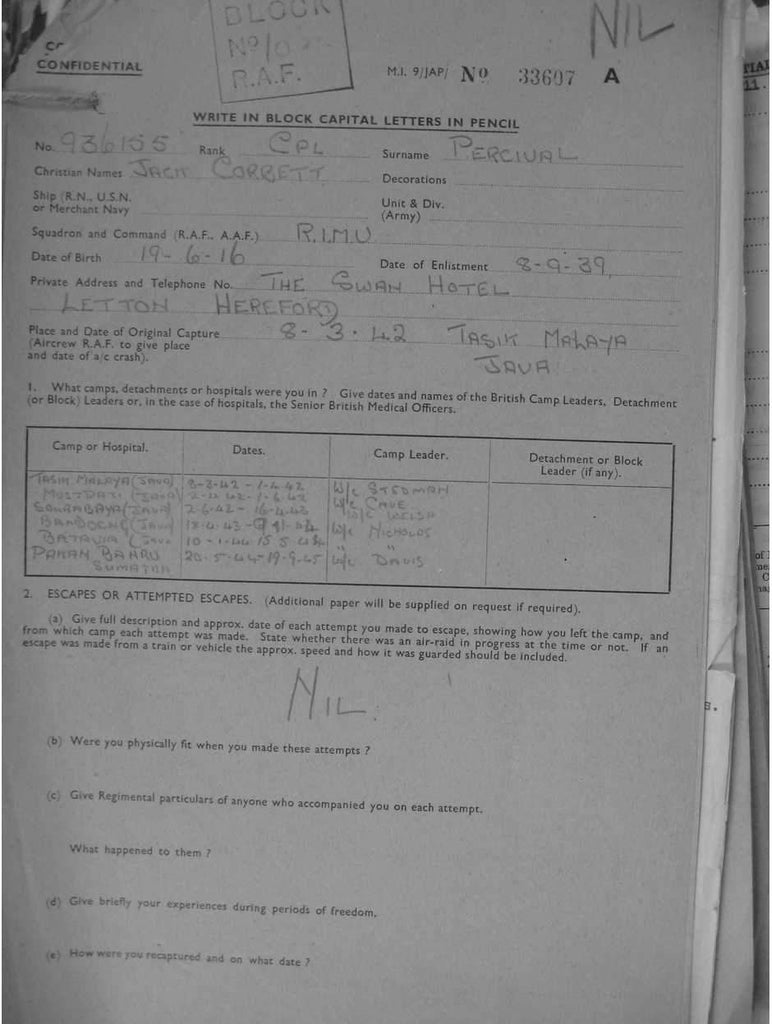 BLOCK
NIL
Nº 10
R.A.F.
CONFIDENTIAL
M.I. 9/JAP/ Nº 33607 A
WRITE IN BLOCK CAPITAL LETTERS IN PENCIL
No. 936155 Rank CPL Surname PERCIVAL
Christian Names JACK CORBETT Decorations
Ship (R.N., U.S.N. or Merchant Navy Unit & Div. (Army)
Squadron and Command (R.A.F., A.A.F.) R.I.M.U
Date of Birth 19-6-16 Date of Enlistment 8-9-39
Private Address and Telephone No. THE SWAN HOTEL
LETTON HEREFORD
Place and Date of Original Capture 8-3-42 TASIK MALAYA
(Aircrew R.A.F. to give place JAVA
and date of a/c crash).
1. What camps, detachments or hospitals were you in ? Give dates and names of the British Camp Leaders, Detachment
(or Block) Leaders or, in the case of hospitals, the Senior British Medical Officers.
Camp or Hospital. Dates. Camp Leader. Detachment or Block
Leader (if any).
TASIK MALAYA (JAVA) 8-3-42 - 1-4-42 W/c STEDMAN
(JAVA) W/c CAVE
SOURABAYA (JAVA) 2-6-42 - 16-4-43 W/c WELSH
BANDOENG (JAVA) W/c NICHOLDS
BATAVIA (JAVA " "
PAKAN BAHRU 20-5-44-19-9-45 W/c DAVIS
SUMATRA
2. ESCAPES OR ATTEMPTED ESCAPES. (Additional paper will be supplied on request if required).
(a) Give full description and approx. date of each attempt you made to escape, showing how you left the camp, and
from which camp each attempt was made. State whether there was an air-raid in progress at the time or not. If an
escape was made from a train or vehicle the approx. speed and how it was guarded should be included.
NIL.
(b) Were you physically fit when you made these attempts ?
(c) Give Regimental particulars of anyone who accompanied you on each attempt.
What happened to them ?
(d) Give briefly your experiences during periods of freedom.
(e) How were you recaptured and on what date ?